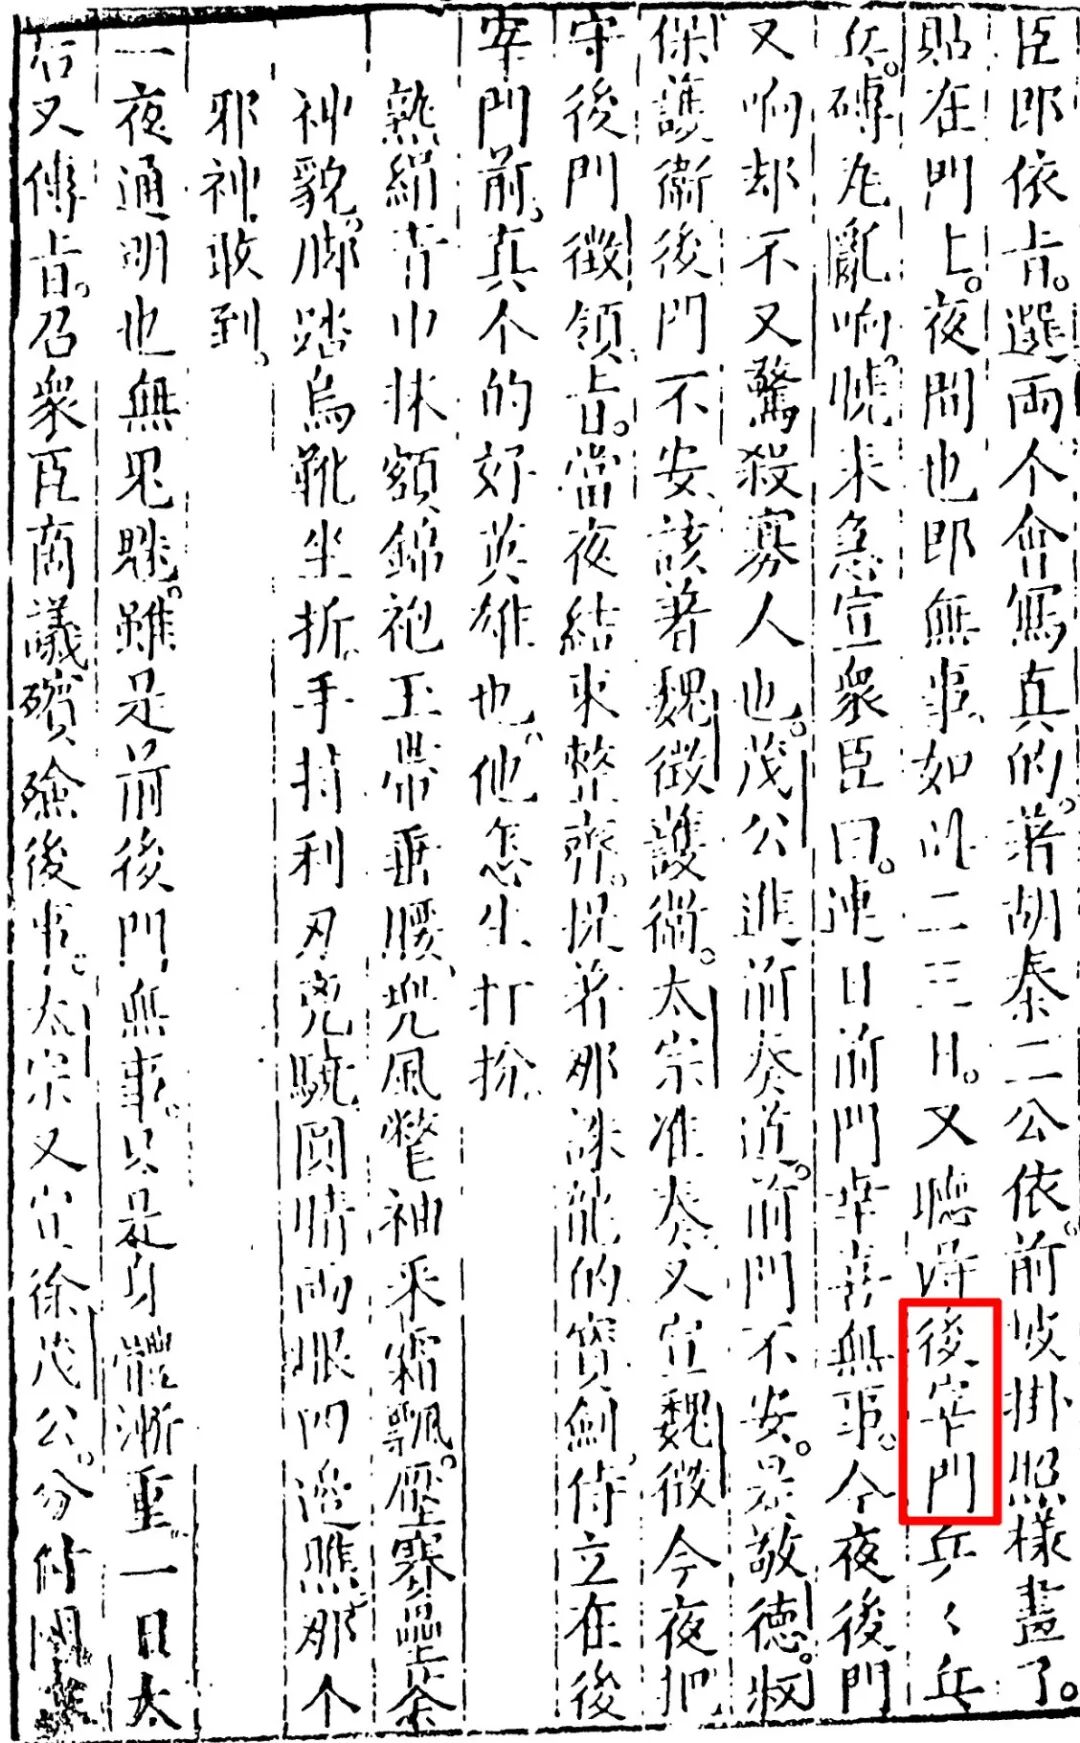 臣即依旨。選兩个會寫真的。著胡秦二公依前披掛照樣畫了。
貼在門上。夜間也即無事。如此二三日。又聽得後宰門乒乓
乓。磚瓦亂响。恍來急宣衆臣曰。連日前門幸喜無事。今夜後門
又响却不又驚殺寡人也。茂公進前奏道。前門不安。是敬德叔
保護衞後門不安。該著魏徵護衞。太宗准奏。又宣魏徵今夜把
守後門。徵領旨。當夜結束整齊。提著那誅龍的寳劍。侍立在後
宰門前。真个的好英雄也。他怎生打扮
熟絹青巾抹額錦袍玉帶垂腰。兠風氅袖采霜飄。壓賽壘荼
神貌。脚踏烏靴坐折。手持利刃兇驍。圓睛兩眼四邊瞧。那个
邪神敢到。
一夜通明也無鬼魅。雖是前後門無事。只是身體漸重。一日太
后又傳旨。召衆臣商議殯殮後事。太宗又宣徐茂公。分付國